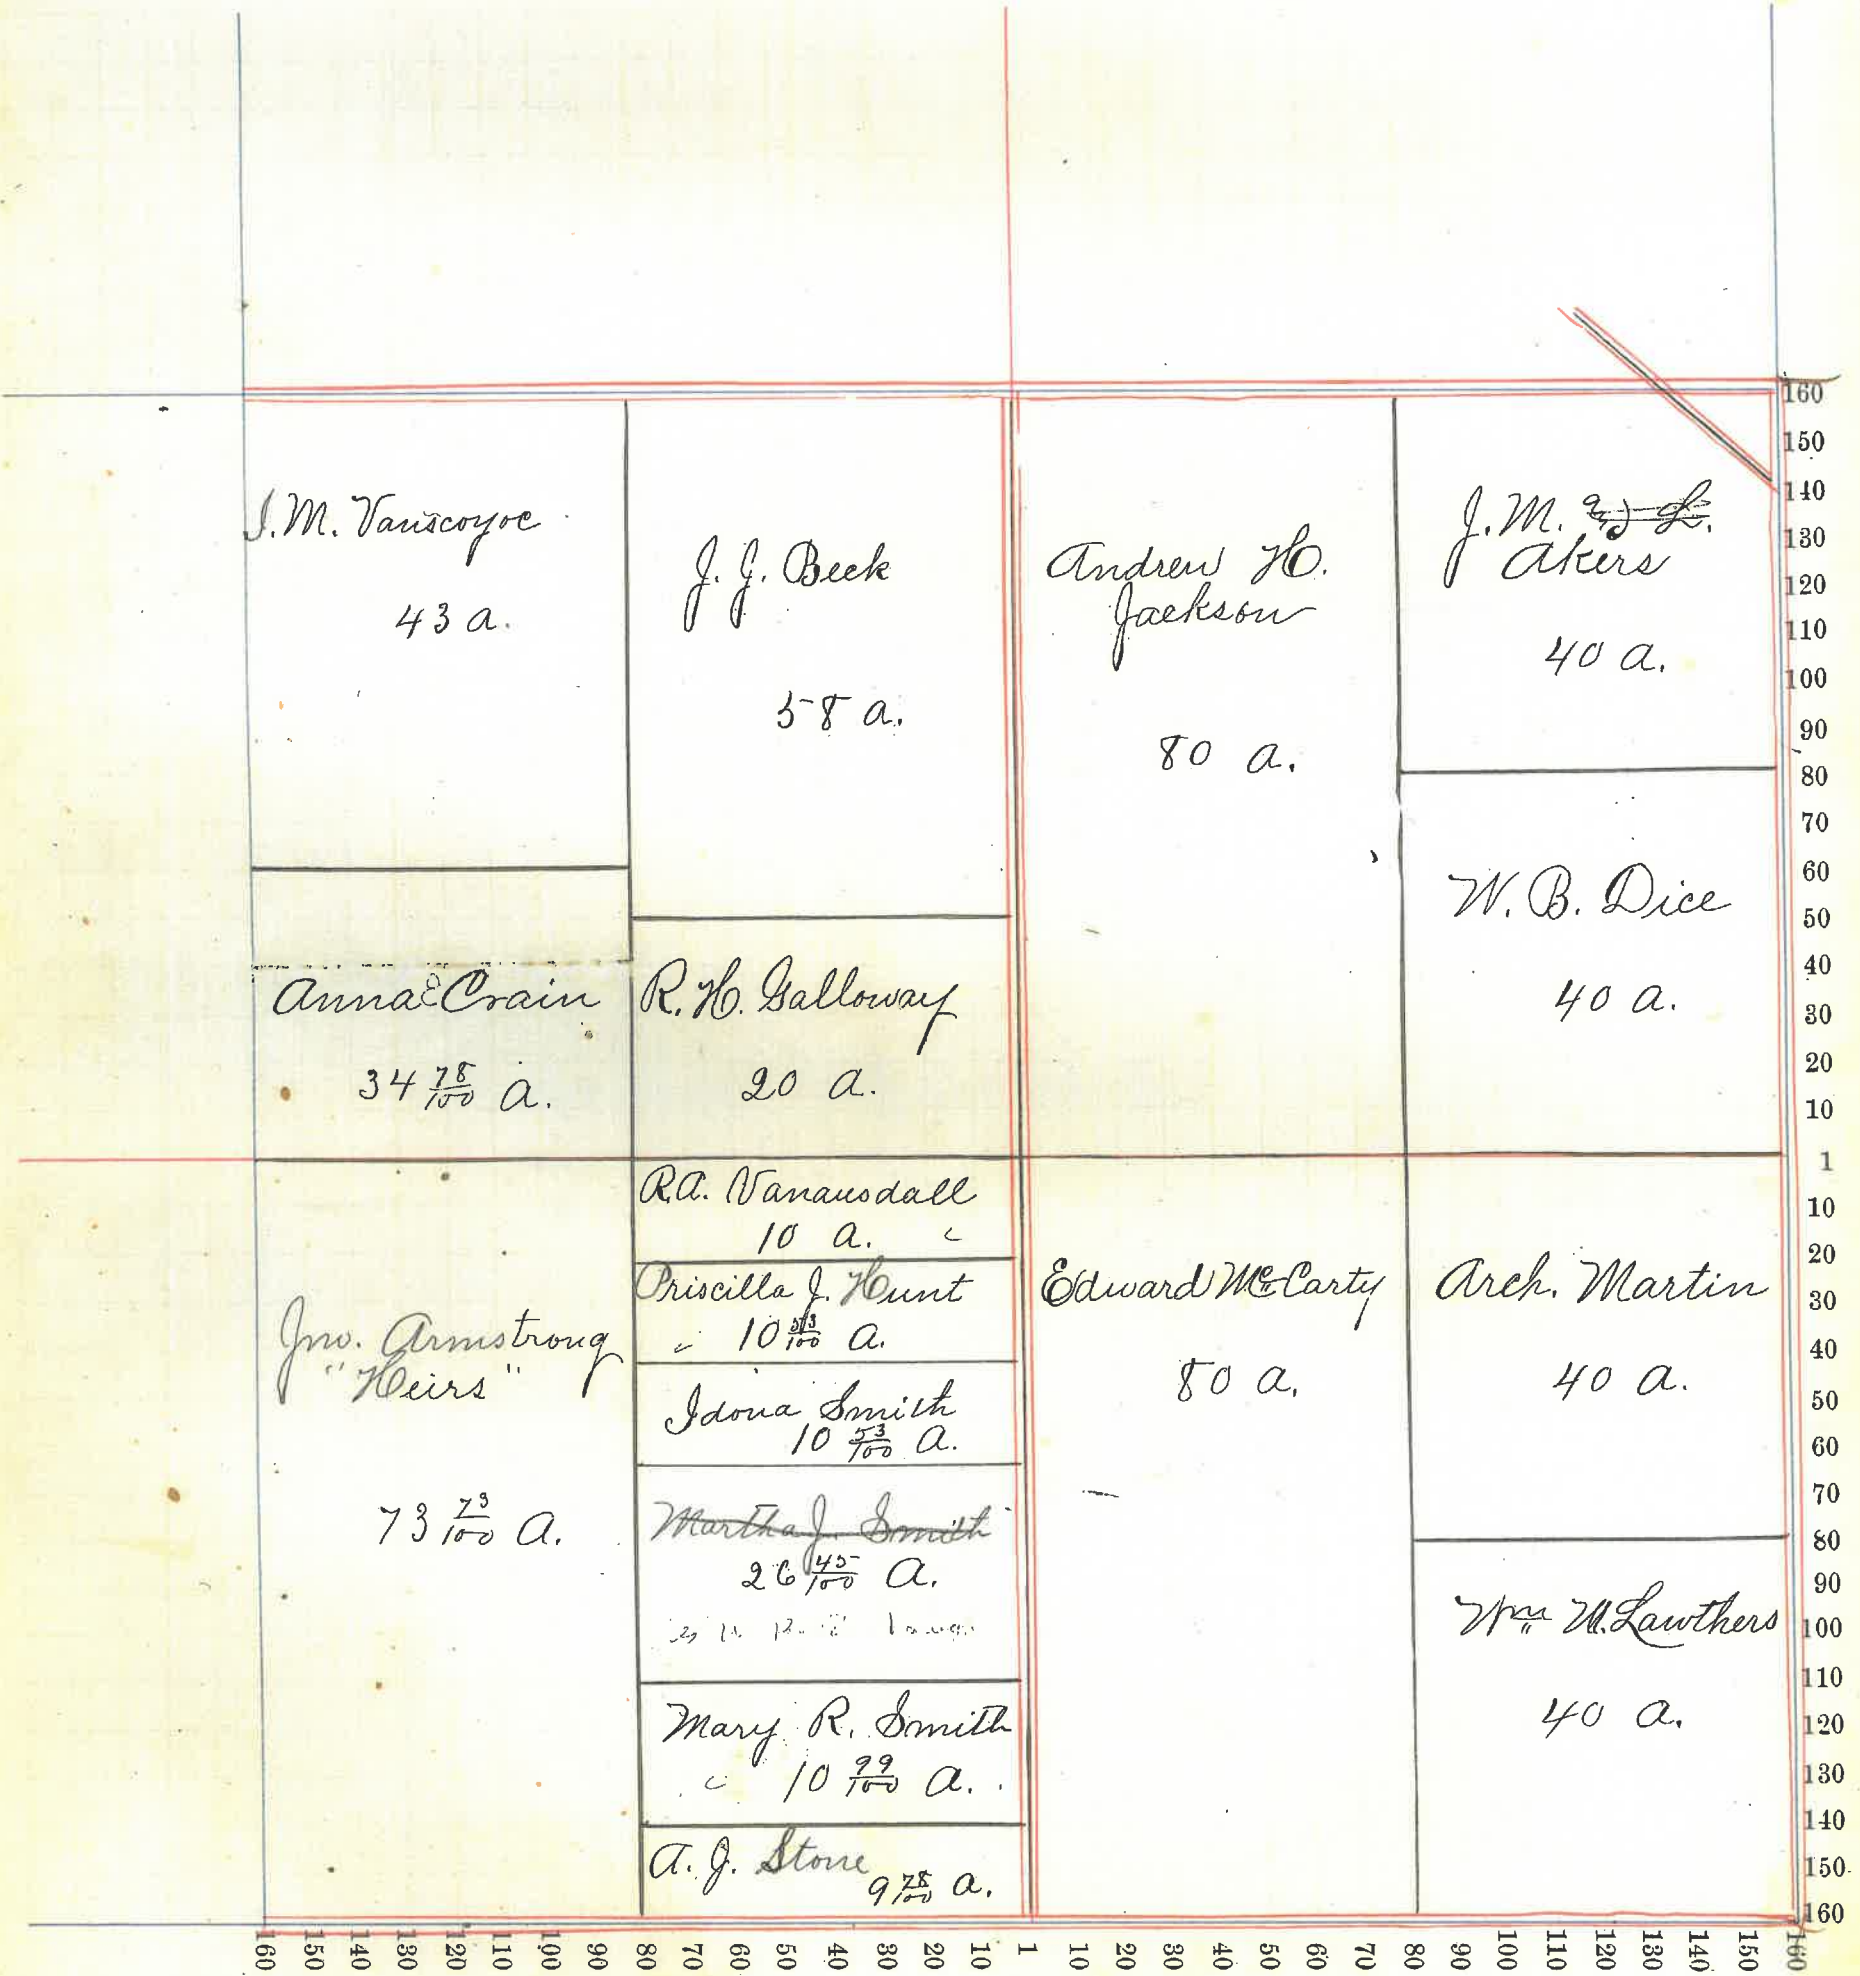 J. M. Vanscoyoc
43 a.
J. J. Beck
58 a.
Andrew H.
Jackson
80 a.
J. M. & L.
Akers
40 a.
W. B. Dice
40 a.
Anna E Crain
34 78/100 a.
R. H. Galloway
20 a.
R. A. Vanausdall
10 a. "
Priscilla J. Hunt
" 10 53/100 a.
Idona Smith
10 53/100 a.
Martha J. Smith
26 45/100 a.
Mary R. Smith
" 10 99/100 a.
A. J. Stone
9 78/100 a.
Jno. Armstrong
"Heirs"
73 73/100 a.
Edward McCarty
80 a.
Arch. Martin
40 a.
Wm M. Lawthers
40 a.
160
150
140
130
120
110
100
90
80
70
60
50
40
30
20
10
1
10
20
30
40
50
60
70
80
90
100
110
120
130
140
150
160
160 150 140 130 120 110 100 90 80 70 60 50 40 30 20 10 1 10 20 30 40 50 60 70 80 90 100 110 120 130 140 150 160